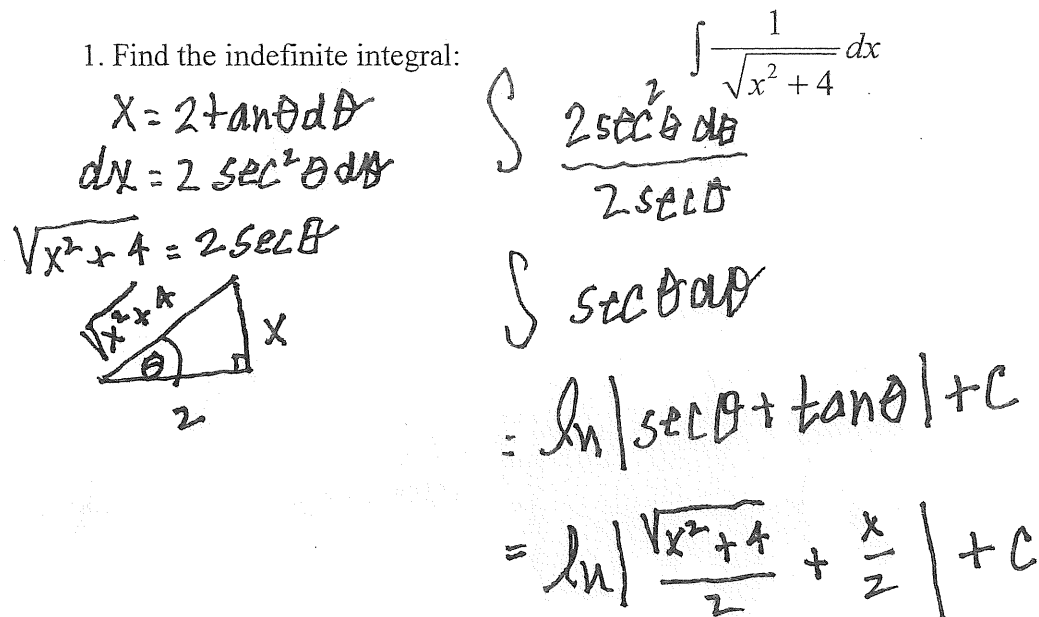 1. Find the indefinite integral: ∫ 1/√(x² + 4) dx
x = 2tanθdθ
dx = 2 sec²θ dθ
√(x² + 4) = 2secθ
√(x² + 4)
θ
x
2
∫ 2sec²θ dθ / 2secθ
∫ secθdθ
= ln|secθ + tanθ| + C
= ln|√(x² + 4)/2 + x/2| + C